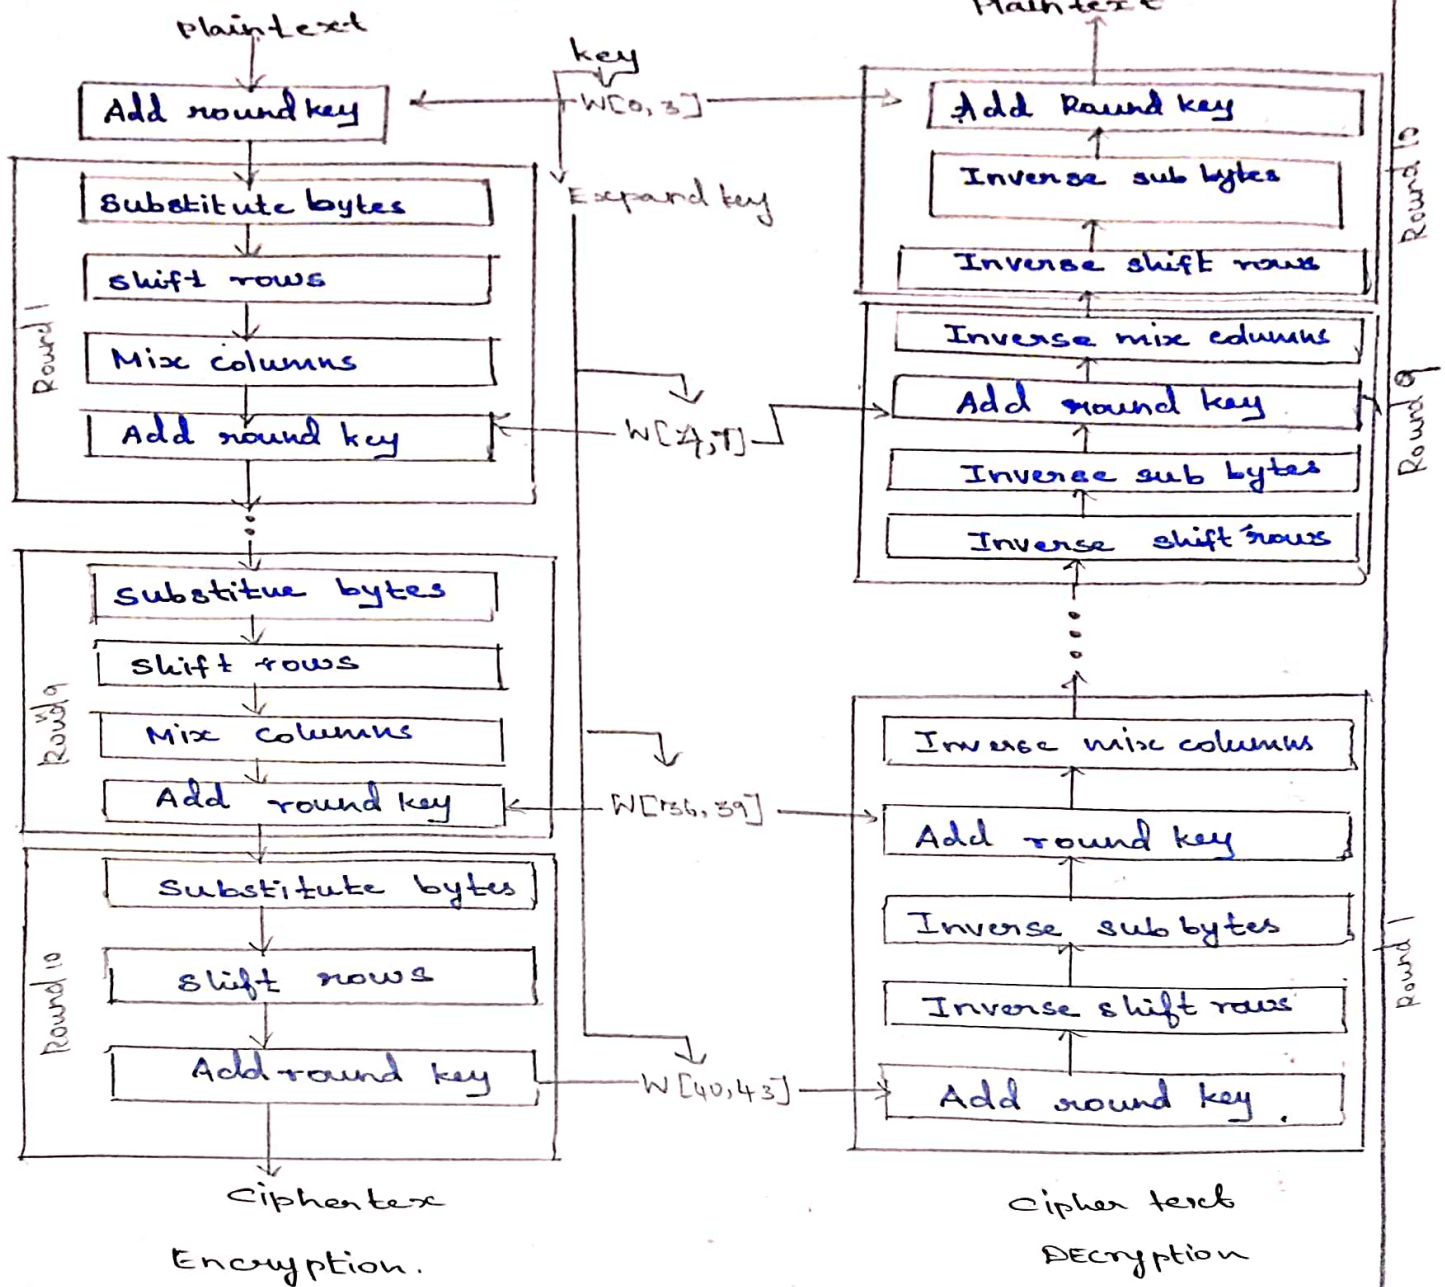 Plaintext
Add round key
Substitute bytes
Shift rows
Mix columns
Add round key
Round 1
Substitue bytes
Shift rows
Mix columns
Add round key
Round 9
Substitute bytes
Shift rows
Add round key
Round 10
Ciphertex
Encryption.
key
W[0, 3]
Expand key
W[4, 7]
W[36, 39]
W[40, 43]
Plaintext
Add Round key
Inverse sub bytes
Inverse shift rows
Round 10
Inverse mix columns
Add round key
Inverse sub bytes
Inverse shift rows
Round 9
Inverse mix columns
Add round key
Inverse sub bytes
Inverse shift rows
Add round key
Round 1
Cipher text
DEcryption